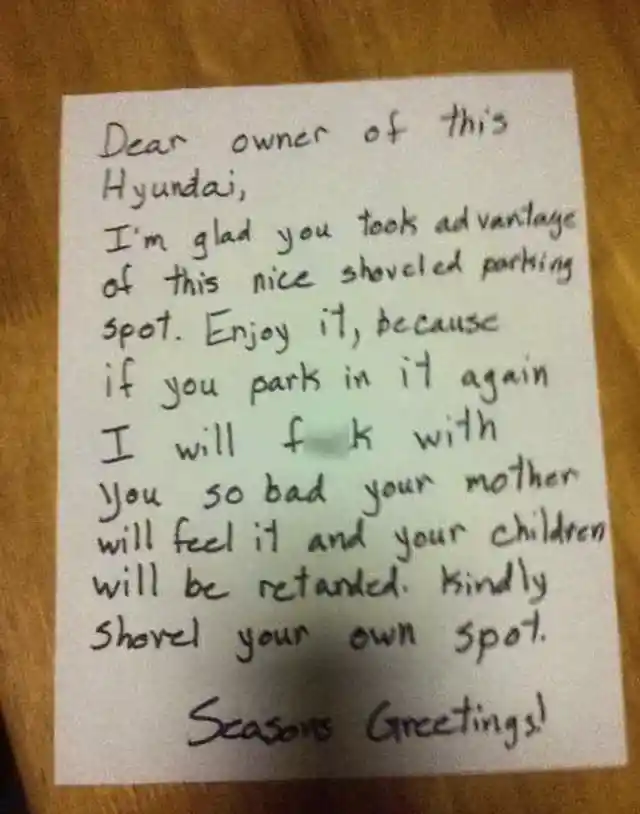 Dear owner of this
Hyundai,
I'm glad you took advantage
of this nice shoveled parking
spot. Enjoy it, because
if you park in it again
I will f k with
you so bad your mother
will feel it and your children
will be retarded. Kindly
shovel your own spot.
Seasons Greetings!